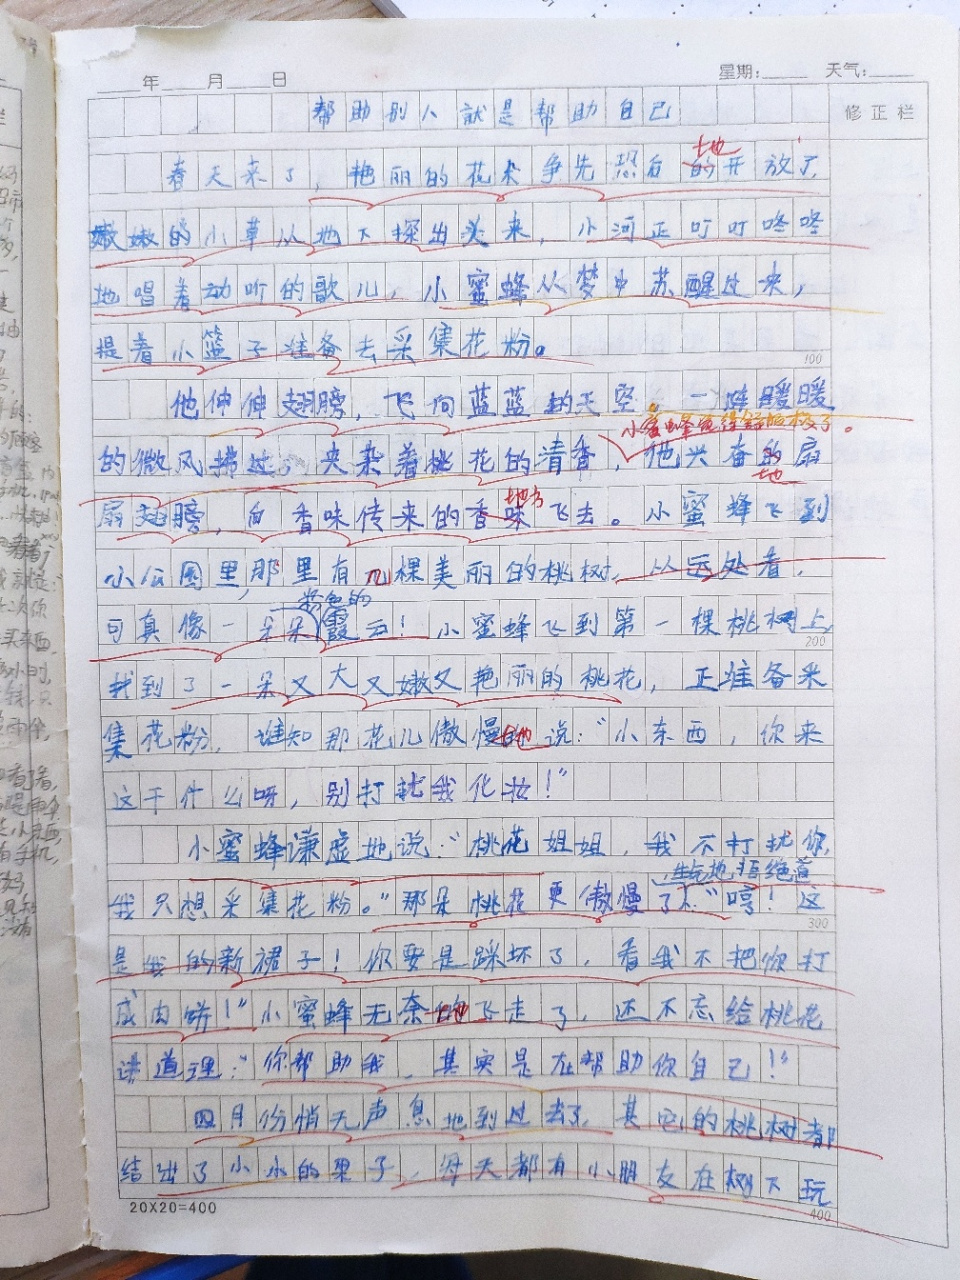 年 月 日 星期: 天气:
修正栏
帮助别人就是帮助自己
春天来了，艳丽的花朵争先恐后的开放了，
地
嫩嫩的小草从地下探出头来，小河正叮叮咚咚
地唱着动听的歌儿，小蜜蜂从梦中苏醒过来，
提着小篮子准备去采集花粉。
100
他伸伸翅膀，飞向蓝蓝的天空。一阵暖暖
小蜜蜂觉得舒服极了。
的微风拂过，夹杂着桃花的清香，他兴奋的扇
地
扇翅膀，向香味传来的香味飞去。小蜜蜂飞到
地方
小公园里，那里有几棵美丽的桃树，从远处看，
粉色的
可真像一朵朵霞云！小蜜蜂飞到第一棵桃树上，
200
找到了一朵又大又嫩又艳丽的桃花，正准备采
集花粉，谁知那花儿傲慢地说：“小东西，你来
这干什么呀，别打扰我化妆！”
小蜜蜂谦虚地说：“桃花姐姐，我不打扰你，
生气地拒绝道
我只想采集花粉。”那朵桃花更傲慢了：“哼！这
300
是我的新裙子！你要是踩坏了，看我不把你打
成肉饼！”小蜜蜂无奈地飞走了，还不忘给桃花
讲道理：“你帮助我，其实是在帮助你自己！”
四月份悄无声息地到过去了，其它的桃树都
结出了小小的果子，每天都有小朋友在树下玩
20X20=400
400